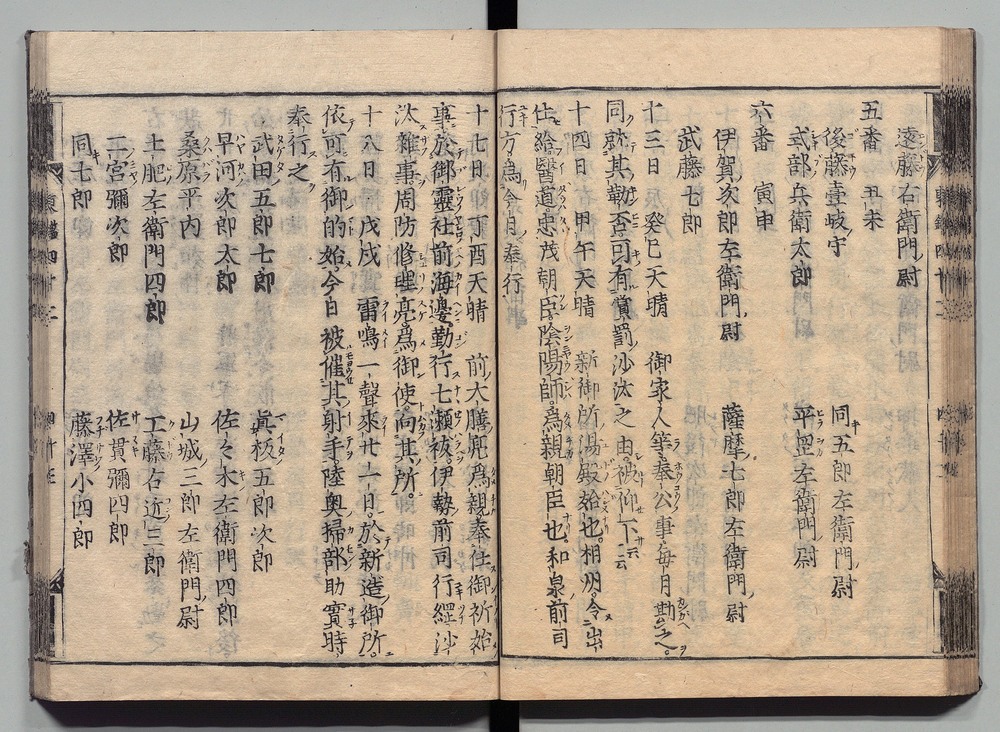 遠藤右衛門尉
五番 丑未
後藤壹岐守 同五郎左衛門尉
式部兵衛太郎 平置左衛門尉
六番 寅申
伊賀次郎左衛門尉 薩摩七郎左衛門尉
武藤七郎
十三日 癸巳天晴 御家人等奉公事毎月勘之。
同就其勤否可有賞罰沙汰之由被仰下云云
十四日 甲午天晴 新御所湯殿始也。相州令出
仕給。醫道忠茂朝臣。陰陽師。為親朝臣也。和泉前司
行方為今月奉行
十七日 丁酉天晴 前大膳亮為親奉仕御祈始
事。於御靈社前海邊勤行七瀬祓。伊勢前司行經沙
汰雜事。周防修理亮為御使。向其所。
十八日 戊戌 雷鳴一聲來廿一日。於新造御所。
依可有御的始。今日被催其射手。陸奥掃部助實時
奉行之
武田五郎七郎 眞板五郎次郎
早河次郎太郎 佐々木左衛門四郎
桑原平内 山城三郎左衛門尉
土肥左衛門四郎 工藤右近三郎
二宮彌次郎 佐貫彌四郎
同七郎 藤澤小四郎
東鑑四十二